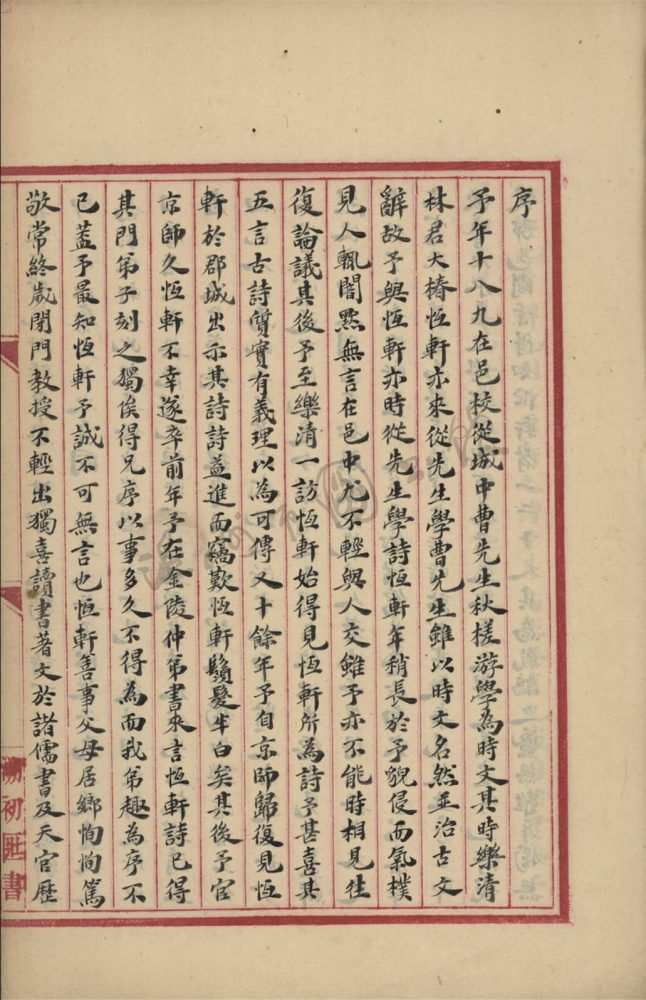 序
予年十八九在邑校從城中曹先生秋槎游學為時文其時樂清
林君大椿恆軒亦來從先生學曹先生雖以時文名然並治古文
辭故予與恆軒亦時從先生學詩恆軒年稍長於予貌侵而氣樸
見人輒闇然無言在邑中尤不輕與人交雖予亦不能時相見往
復論議其後予至樂清一訪恆軒始得見恆軒所為詩予甚喜其
五言古詩質實有義理以為可傳又十餘年予自京師歸復見恆
軒於郡城出示其詩詩益進而竊歎恆軒鬚髮半白矣其後予官
京師久恆軒不幸遂卒前年予在金陵仲弟書來言恆軒詩已得
其門弟子刻之獨俟得兄序以事多久不得為而我弟趣為序不
已蓋予最知恆軒予誠不可無言也恆軒善事父母居鄉恂恂篤
敬常終歲閉門教授不輕出獨喜讀書著文於諸儒書及天官歷